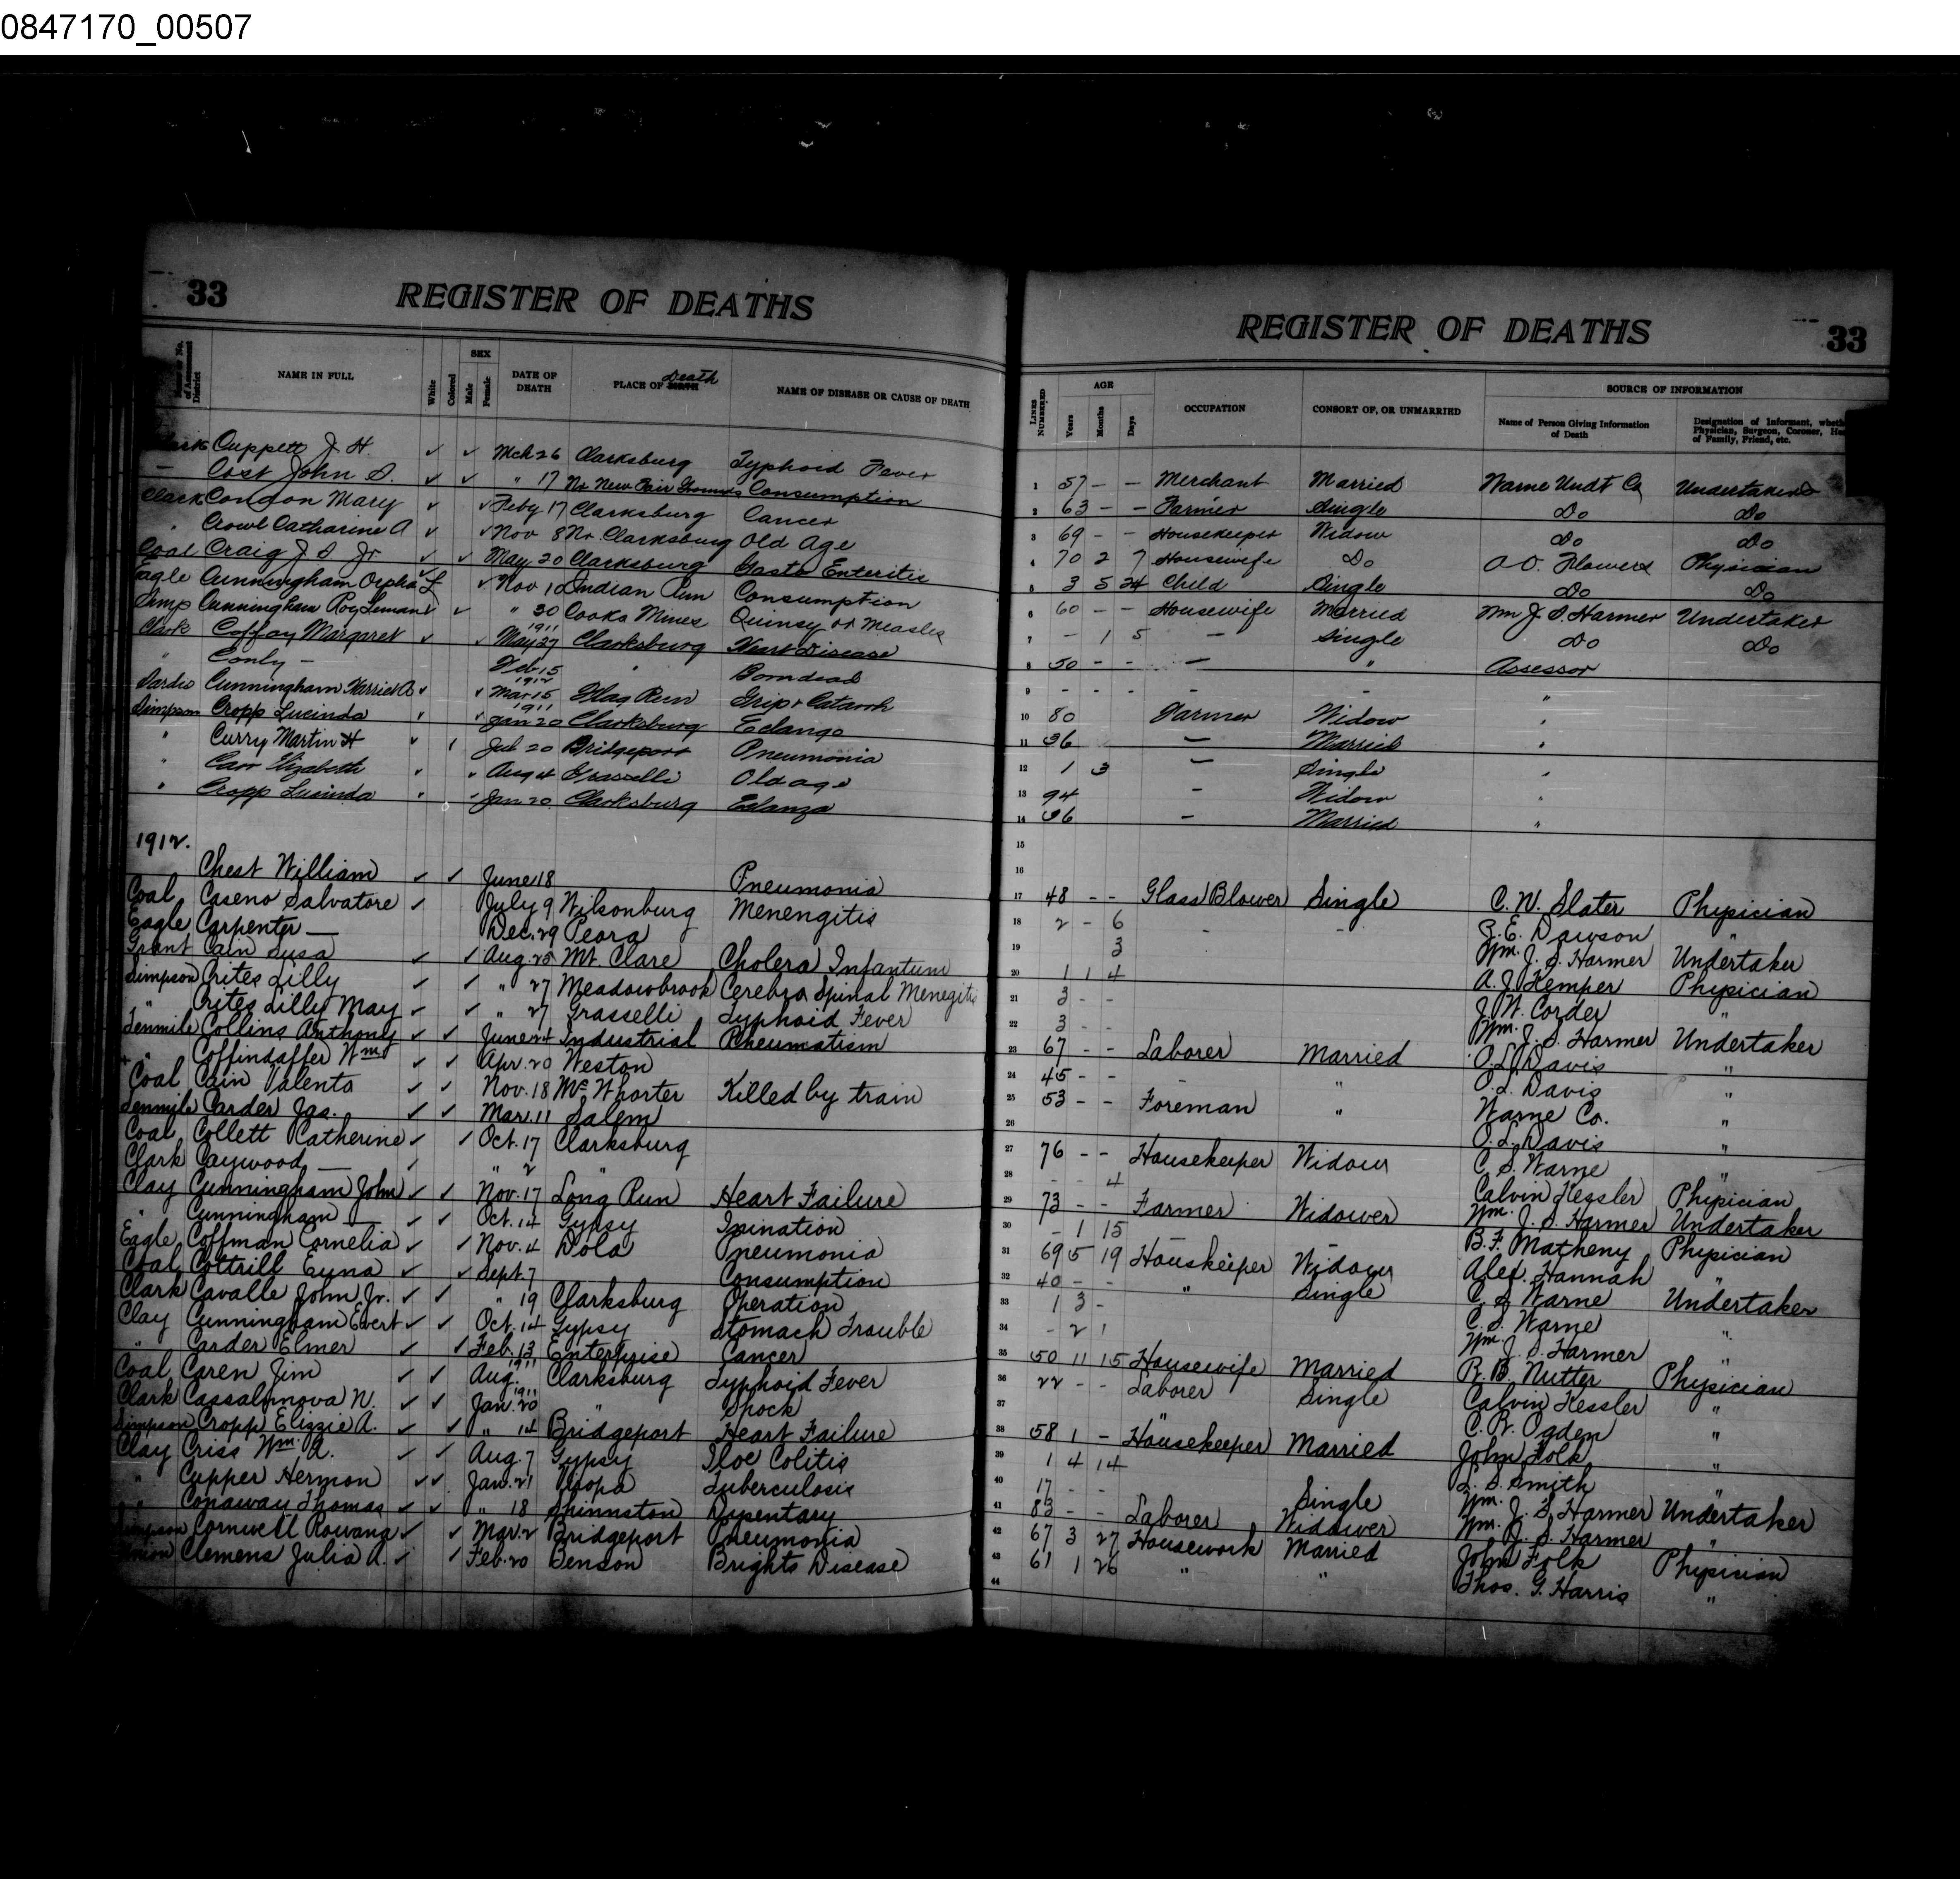 0847170_00507
33 REGISTER OF DEATHS
REGISTER OF DEATHS 33
District NAME IN FULL White Colored SEX Male Female DATE OF DEATH PLACE OF BIRTH Death NAME OF DISEASE OR CAUSE OF DEATH
LINES NUMBERED AGE Years Months Days OCCUPATION CONSORT OF, OR UNMARRIED SOURCE OF INFORMATION Name of Person Giving Information of Death Designation of Informant, Physician, Surgeon, Coroner, of Family, Friend, etc.
Cuppett J. H. ✓ ✓ Mch 26 Clarksburg Typhoid Fever
— Cost John S. ✓ ✓ " 17 Nr New Fair Grounds Consumption
Clark Condon Mary ✓ ✓ Feby 17 Clarksburg Cancer
" Crowl Catharine A ✓ ✓ Nov 8 Nr Clarksburg Old Age
Coal Craig J S Jr ✓ ✓ May 20 Clarksburg Gastro Enteritis
Eagle Cunningham Orpha L ✓ ✓ Nov 10 Indian Run Consumption
Simp Cunningham Roy Leman ✓ ✓ " 30 Cooks Mines Quinsy or Measles
Clark Coffay Margaret ✓ ✓ 1911 May 27 Clarksburg Heart Disease
" Conly — Feb 15 " Borndead
Sardis Cunningham Harriet A ✓ ✓ 1912 Mar 15 Flag Run Grip & Catarrh
Simpson Cropp Lucinda ✓ ✓ 1911 Jan 20 Clarksburg
" Curry Martin H ✓ ✓ Jul 20 Bridgeport Pneumonia
" Carr Elizabeth ✓ ✓ Aug 4 Grasselli Old age
" Cropp Lucinda ✓ ✓ Jan 20 Clarksburg
1912.
Chest William ✓ ✓ June 18 Pneumonia
Coal Caseno Salvatore ✓ July 9 Wilsonburg Menengitis
Eagle Carpenter — Dec. 29 Peora
Grant Cain Susa ✓ ✓ Aug. 25 Mt. Clare Cholera Infantum
Simpson Crites Lilly ✓ ✓ " 27 Meadowbrook Cerebro Spinal Menegitis
" Crites Lilly May ✓ ✓ " 27 Grasselli Typhoid Fever
Tenmile Collins Anthony ✓ ✓ June 24 Industrial Rheumatism
+ " Coffindaffer Wm ✓ ✓ Apr. 20 Weston
Coal Cain Valenta ✓ ✓ Nov. 18 McWhorter Killed by train
Tenmile Carder Jas. ✓ ✓ Mar. 11 Salem
Coal Collett Catherine ✓ ✓ Oct. 17 Clarksburg
Clark Caywood — ✓ " 2 "
Clay Cunningham John ✓ ✓ Nov. 17 Long Run Heart Failure
" Cunningham — ✓ ✓ Oct. 14 Gypsy
Eagle Coffman Cornelia ✓ ✓ Nov. 4 Dola Pneumonia
Coal Cottrill ✓ ✓ Sept. 7 Consumption
Clark Cavalle John Jr. ✓ ✓ " 19 Clarksburg Operation
Clay Cunningham Evert ✓ ✓ Oct. 14 Gypsy Stomach Trouble
" Carder Elmer ✓ ✓ Feb. 13 Enterprise Cancer
Coal Caren Jim ✓ ✓ Aug. 1911 Clarksburg Typhoid Fever
Clark Cassalonova N. ✓ ✓ Jan. 20 1911 " Shock
Simpson Cropp Elizzie A. ✓ ✓ " 14 Bridgeport Heart Failure
Clay Criss Wm. A. ✓ ✓ Aug. 7 Gypsy Iloe Colitis
" Cupper Hermon ✓ ✓ Jan. 21 Tuberculosis
" Conaway Thomas ✓ ✓ " 18 Shinnston Dysentary
Simpson Cornwell Rowana ✓ ✓ Mar. 2 Bridgeport Pneumonia
Union Clemens Julia A. ✓ ✓ Feb. 20 Benson Brights Disease
1 57 – – Merchant Married Warne Undt Co Undertakers
2 63 – – Farmer Single Do Do
3 69 – – Housekeeper Widow Do Do
4 70 2 7 Housewife Do A O. Flowers Physician
5 3 5 24 Child Single Do Do
6 60 – – Housewife Married Wm J. S. Harmer Undertaker
7 – 1 5 – Single Do Do
8 50 – – – " Assessor
9 – – – – – "
10 80 Farmer Widow "
11 36 – Married "
12 1 3 – Single "
13 94 – Widow "
14 36 – Married "
15
16
17 48 – – Glass Blower Single C. W. Slater Physician
18 2 – 6 – – Z. E. Dawson "
19 3 Wm. J. S. Harmer Undertaker
20 1 1 4 A. J. Kemper Physician
21 3 – – J. W. Corder "
22 3 – – Wm. J. S. Harmer Undertaker
23 67 – – Laborer Married O. L. Davis "
24 45 – – – " O. L. Davis "
25 53 – – Foreman " Warne Co. "
26 O. L. Davis "
27 76 – – Housekeeper Widow C. S. Warne "
28 – – 4 Calvin Kessler Physician
29 73 – – Farmer Widower Wm. J. S. Harmer Undertaker
30 – 1 15 – – B. F. Matheny Physician
31 69 5 19 Houskeeper Widow Alex. Hannah "
32 40 – – " Single C. S. Warne Undertaker
33 1 3 – C. S. Warne "
34 – 2 1 Wm. J. S. Harmer "
35 50 11 15 Housewife Married R. B. Nutter Physician
36 22 – – Laborer Single Calvin Kessler "
37 " C. R. Ogden "
38 58 1 – Housekeeper Married John Folk "
39 1 4 14 L. S. Smith "
40 17 – – Single Wm. J. S. Harmer Undertaker
41 83 – – Laborer Widower Wm. J. S. Harmer "
42 67 3 27 Housework Married John Folk Physician
43 61 1 26 " " Thos. G. Harris "
44